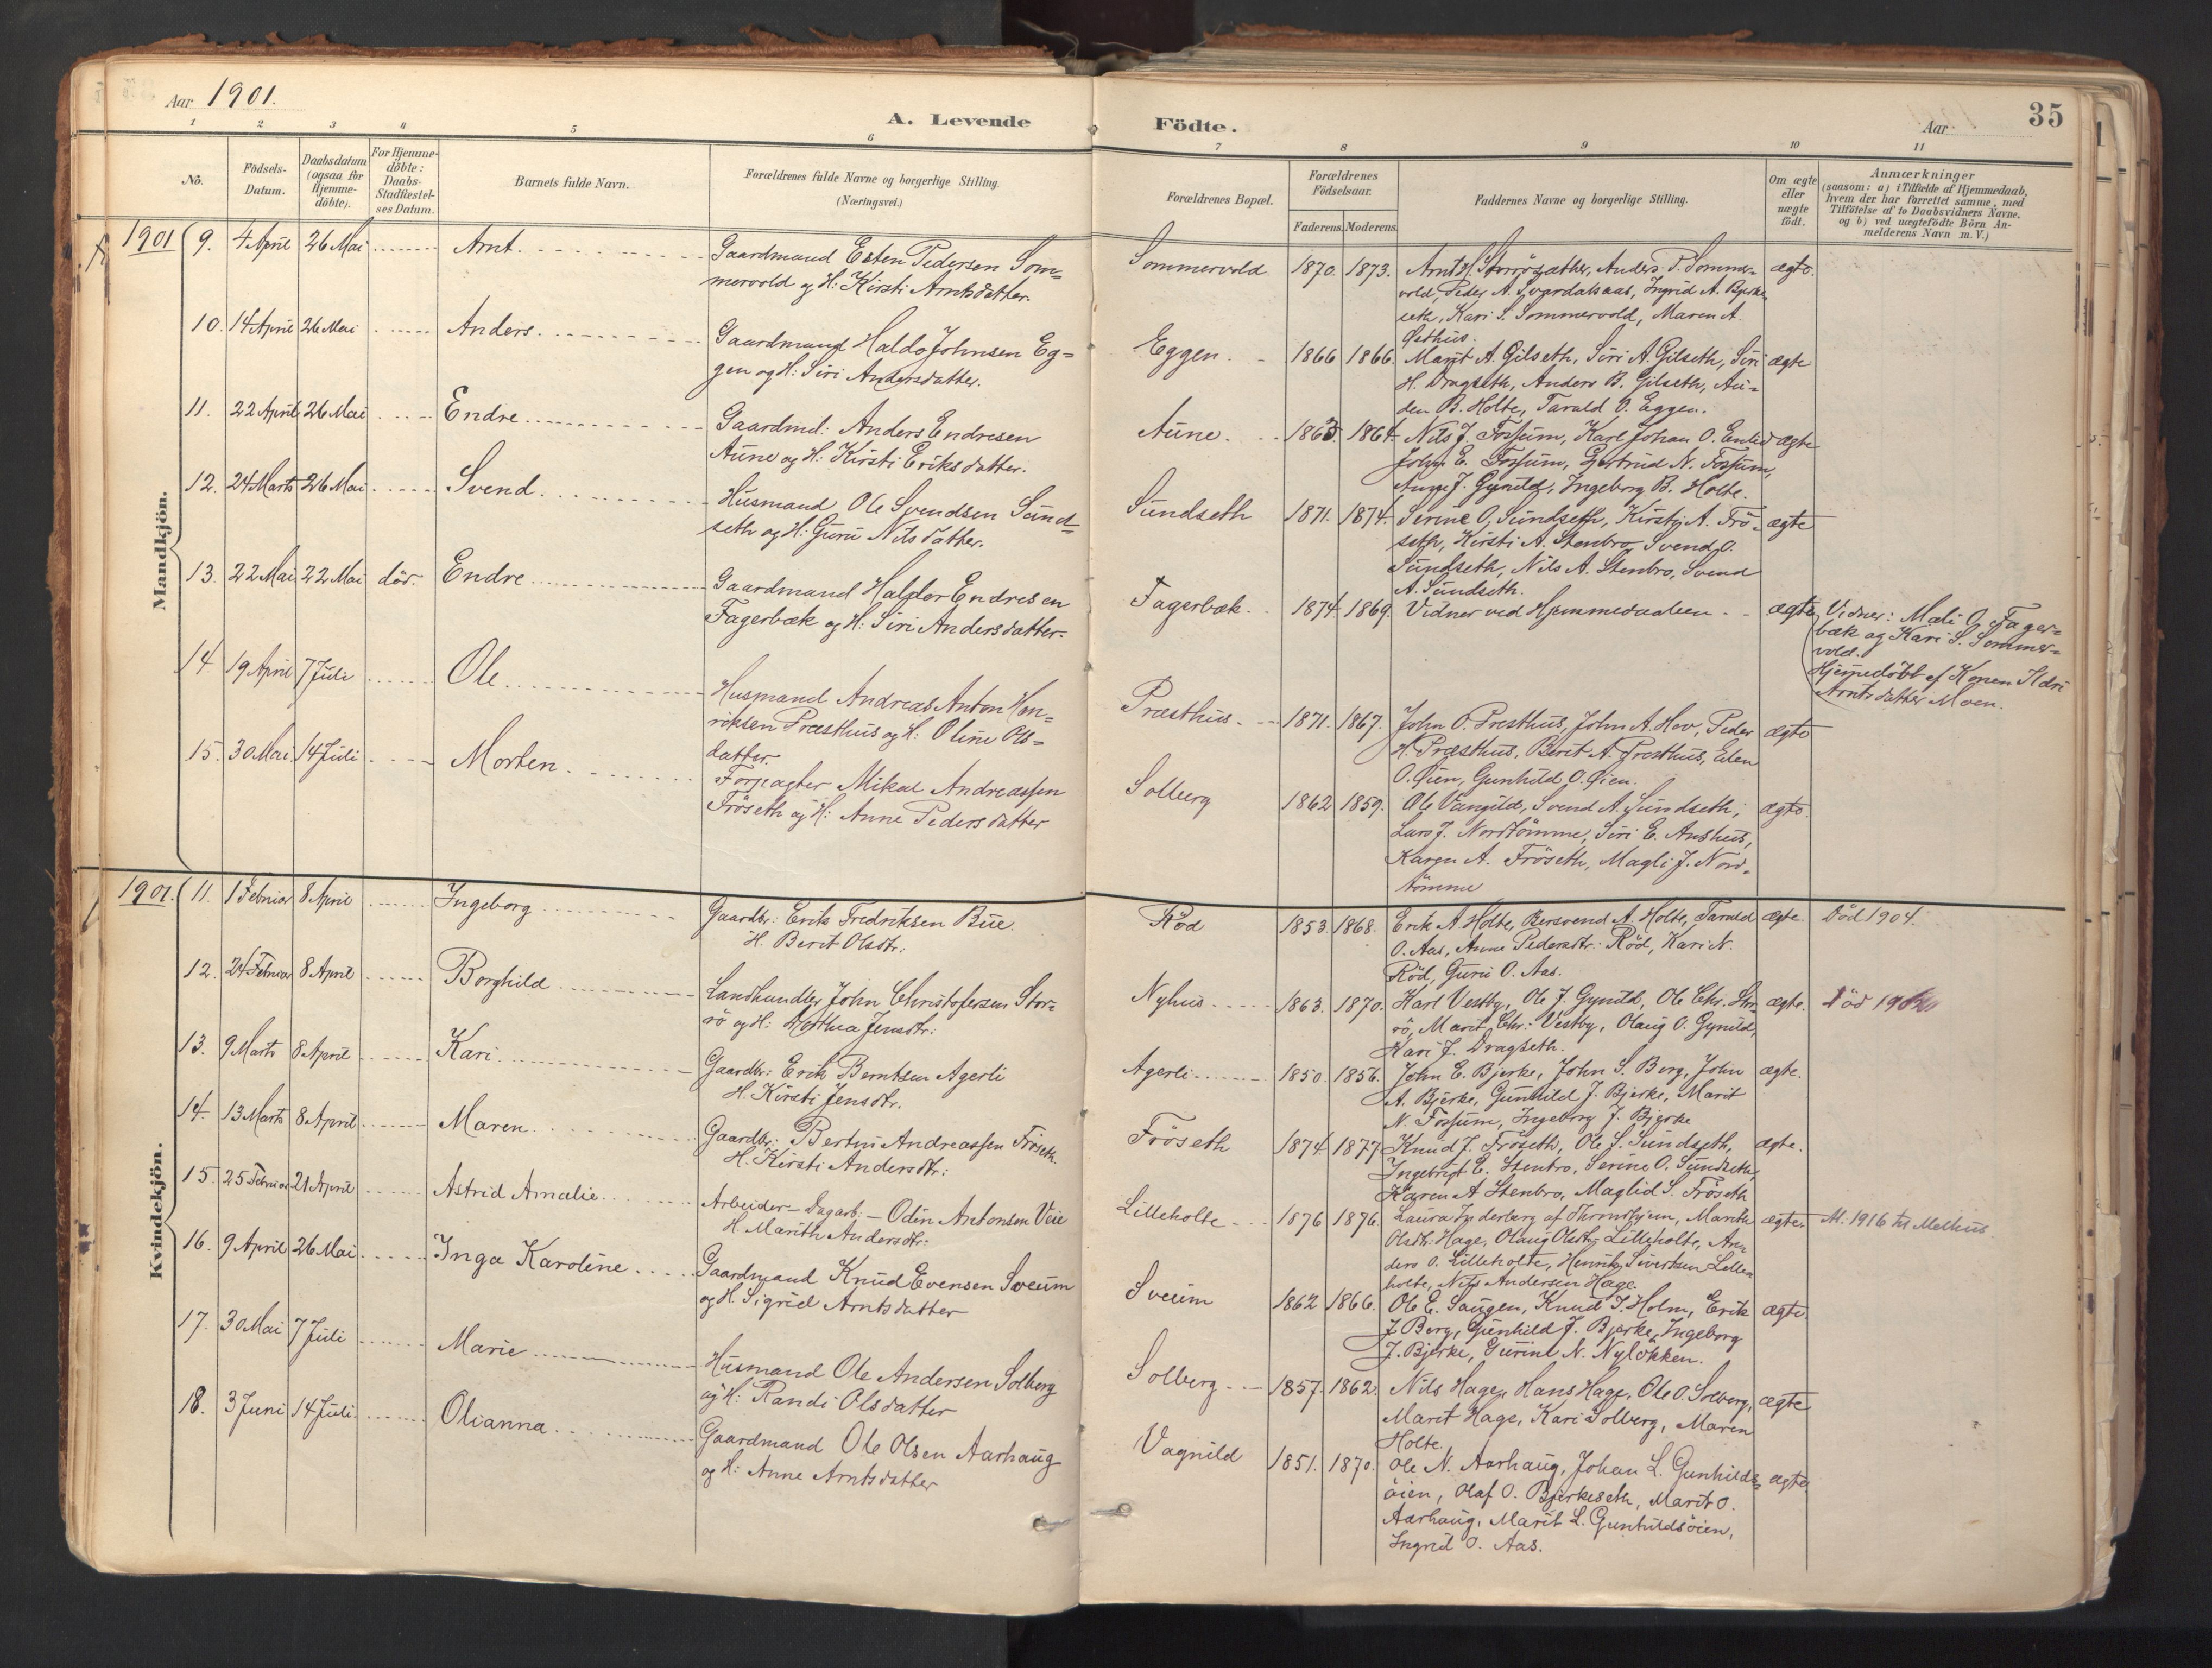 Aar 1901.
A. Levende Födte.
Aar
35
1 2 3 4 5 6 7 8 9 10 11
No.
Födsels-Datum.
Daabsdatum (ogsaa for Hjemme-döbte).
For Hjemme-döbte: Daabs-Stadfæstel-ses Datum.
Barnets fulde Navn.
Forældrenes fulde Navne og borgerlige Stilling. (Næringsvei.)
Forældrenes Bopæl.
Forældrenes Födselsaar.
Faderens. Moderens.
Faddernes Navne og borgerlige Stilling.
Om ægte eller uægte födt.
Anmærkninger
(saasom: a) i Tilfælde af Hjemmedaab,
hvem der har forrettet samme, med
Tilföielse af to Daabsvidners Navne.
og b) ved uægtefödte Börn An-
melderens Navn m. V.)
Mandkjön.
1901 9. 4 April 26 Mai Arnt.
Gaardmand Esten Pedersen Som=
mervold og H: Kirsti Arntsdatter.
Sommervold 1870. 1873.
Arnt H. Storrösæther, Anders P. Sommer=
vold, Peder A. Svardalsaas, Ingrid A. Bjerke
seth, Kari S. Sommervold, Maren A.
Gethus.
ægte.
10. 14 April 26 Mai Anders.
Gaardmand Haldo Johnsen Eg=
gen og H: Siri Andersdatter.
Eggen. 1866 1866.
Marit A. Gilseth, Siri A. Gilseth, Siri
H. Dragseth, Anders B. Gilseth, Au=
den B. Holte, Tarald O. Eggen.
ægte
11. 22 April 26 Mai Endre
Gaardmd: Anders Endresen
Aune og H: Kirsti Eriksdatter.
Aune. 1865 1864
Nils J. Fossum, Karl Johan O. Enlid
John E. Fossum, Gjertrud N. Fossum,
Anne J. Gynild, Ingeborg B. Holte.
ægte
12. 24 Marts 26 Mai Svend
Husmand Ole Svendsen Sund=
seth og H: Guru Nilsdatter.
Sundseth 1871. 1874.
Serine O. Sundseth, Kirsti A. Frö=
seth, Kirsti A. Stenbro, Svend O.
Sundseth, Nils A. Stenbro, Svend
A. Sundseth.
ægte
13. 22 Mai 22 Mai död. Endre
Gaardmand Haldor Endresen
Fagerbæk og H: Siri Andersdatter.
Fagerbæk. 1874. 1869.
Vidner ved Hjemmedaaben
ægte
Vidner: Mali O. Fager=
bæk og Kari S. Sommer=
vold.
Hjemmedöbt af Konen Ildri
Arntsdatter Moen.
14 19 April 7 Juli Ole
Husmand Andreas Anton Hen=
riksen Præsthus og H: Oline Ols=
datter
Præsthus. 1871. 1867.
John O. Presthus, John A. Hov, Peder
H. Præsthus, Berit A. Præsthus, Eden
O. Öien, Gunhild O. Öien.
ægte
15. 30 Mai 14 Juli Morten.
Forpagter Mikal Andreassen
Fröseth og H: Anne Pedersdatter
Solberg 1862 1859.
Ole Vangild, Svend A. Sundseth,
Lars J. Nordtömme, Siri E. Aushus,
Karen A. Fröseth, Magli J. Nord=
tömme
ægte.
Kvindekjön.
1901. 11. 1 Februar 8 April Ingeborg
Gaardbr: Erik Fredriksen Bue.
H. Berit Olsdtr:
Röd 1853. 1868.
Erik A. Holte, Bersvend A. Holte, Tarald
O. Aas, Anne Pedersdtr. Röd, Kari N.
Röd, Guru O. Aas.
ægte. Död 1904.
12. 24 Februar 8 April Borghild
Landhandler John Christofersen Stor=
rö og H: Dorthea Jensdtr:
Nyhus 1863. 1870.
Karl Vestby, Ole J. Gynild, Ole Chr. Stor
rö, Marit Chr: Vestby, Olaug O. Gynild,
Kari J. Dragseth.
ægte. Död
13. 9 Marts 8 April Kari
Gaardbr: Erik Berntsen Agerli
H. Kirsti Jensdtr.
Agerli 1850. 1856.
John E. Bjerke, John S. Berg, John
A. Bjerke, Gunhild J. Bjerke, Marit
N. Fossum, Ingeborg J. Bjerke
ægte.
14. 13 Marts 8 April Maren
Gaardbr: Bertin Andreassen Fröseth.
H. Kirsti Andersdtr:
Fröseth 1874 1877
Knud J. Fröseth, Ole S. Sundseth,
Ingebrigt E. Stenbro, Serine O. Sundseth,
Karen A Stenbro, Maglid S. Fröseth
ægte.
15. 25 Februar 21 April Astrid Amalie
Arbeider - Dagarb: - Odin Antonsen Veie
H. Marith Andersdtr:
Lilleholte 1876 1876.
Laura Inderberg af Thronhjem, Marith
Olsdtr: Hage, Olaug Olsdtr: Lilleholte, An=
ders O. Lilleholte, Henrik Sivertsen Lille=
holte, Nils Andersen Hage.
ægte. M. 1916 til Melhus.
16. 9 April 26 Mai Inga Karoline
Gaardmand Knud Evensen Sveum
og H. Sigrid Arntsdatter
Sveum 1862 1866.
Ole E. Haugen, Knud J. Holm, Erik
J. Berg, Gunhild J. Bjerke, Ingeborg
J. Bjerke, Gurine N. Nylökken.
ægte.
17. 30 Mai 7 Juli Marie
Husmand Ole Andersen Solberg
og H: Randi Olsdatter
Solberg 1857. 1862.
Nils Hage, Hans Hage, Ole O. Solberg,
Marit Hage, Kari Solberg, Maren
Holte.
ægte
18. 3 Juni 14 Juli. Olianna
Gaardmand Ole Olsen Aarhaug
og H: Anne Arntsdatter
Vagnild 1851. 1870.
Ole N. Aarhaug, Johan L. Gunhilds=
öien, Olaf O. Bjerkeseth, Marit O.
Aarhaug, Marit L. Gunhildsöien,
Ingrid O. Aas.
ægte